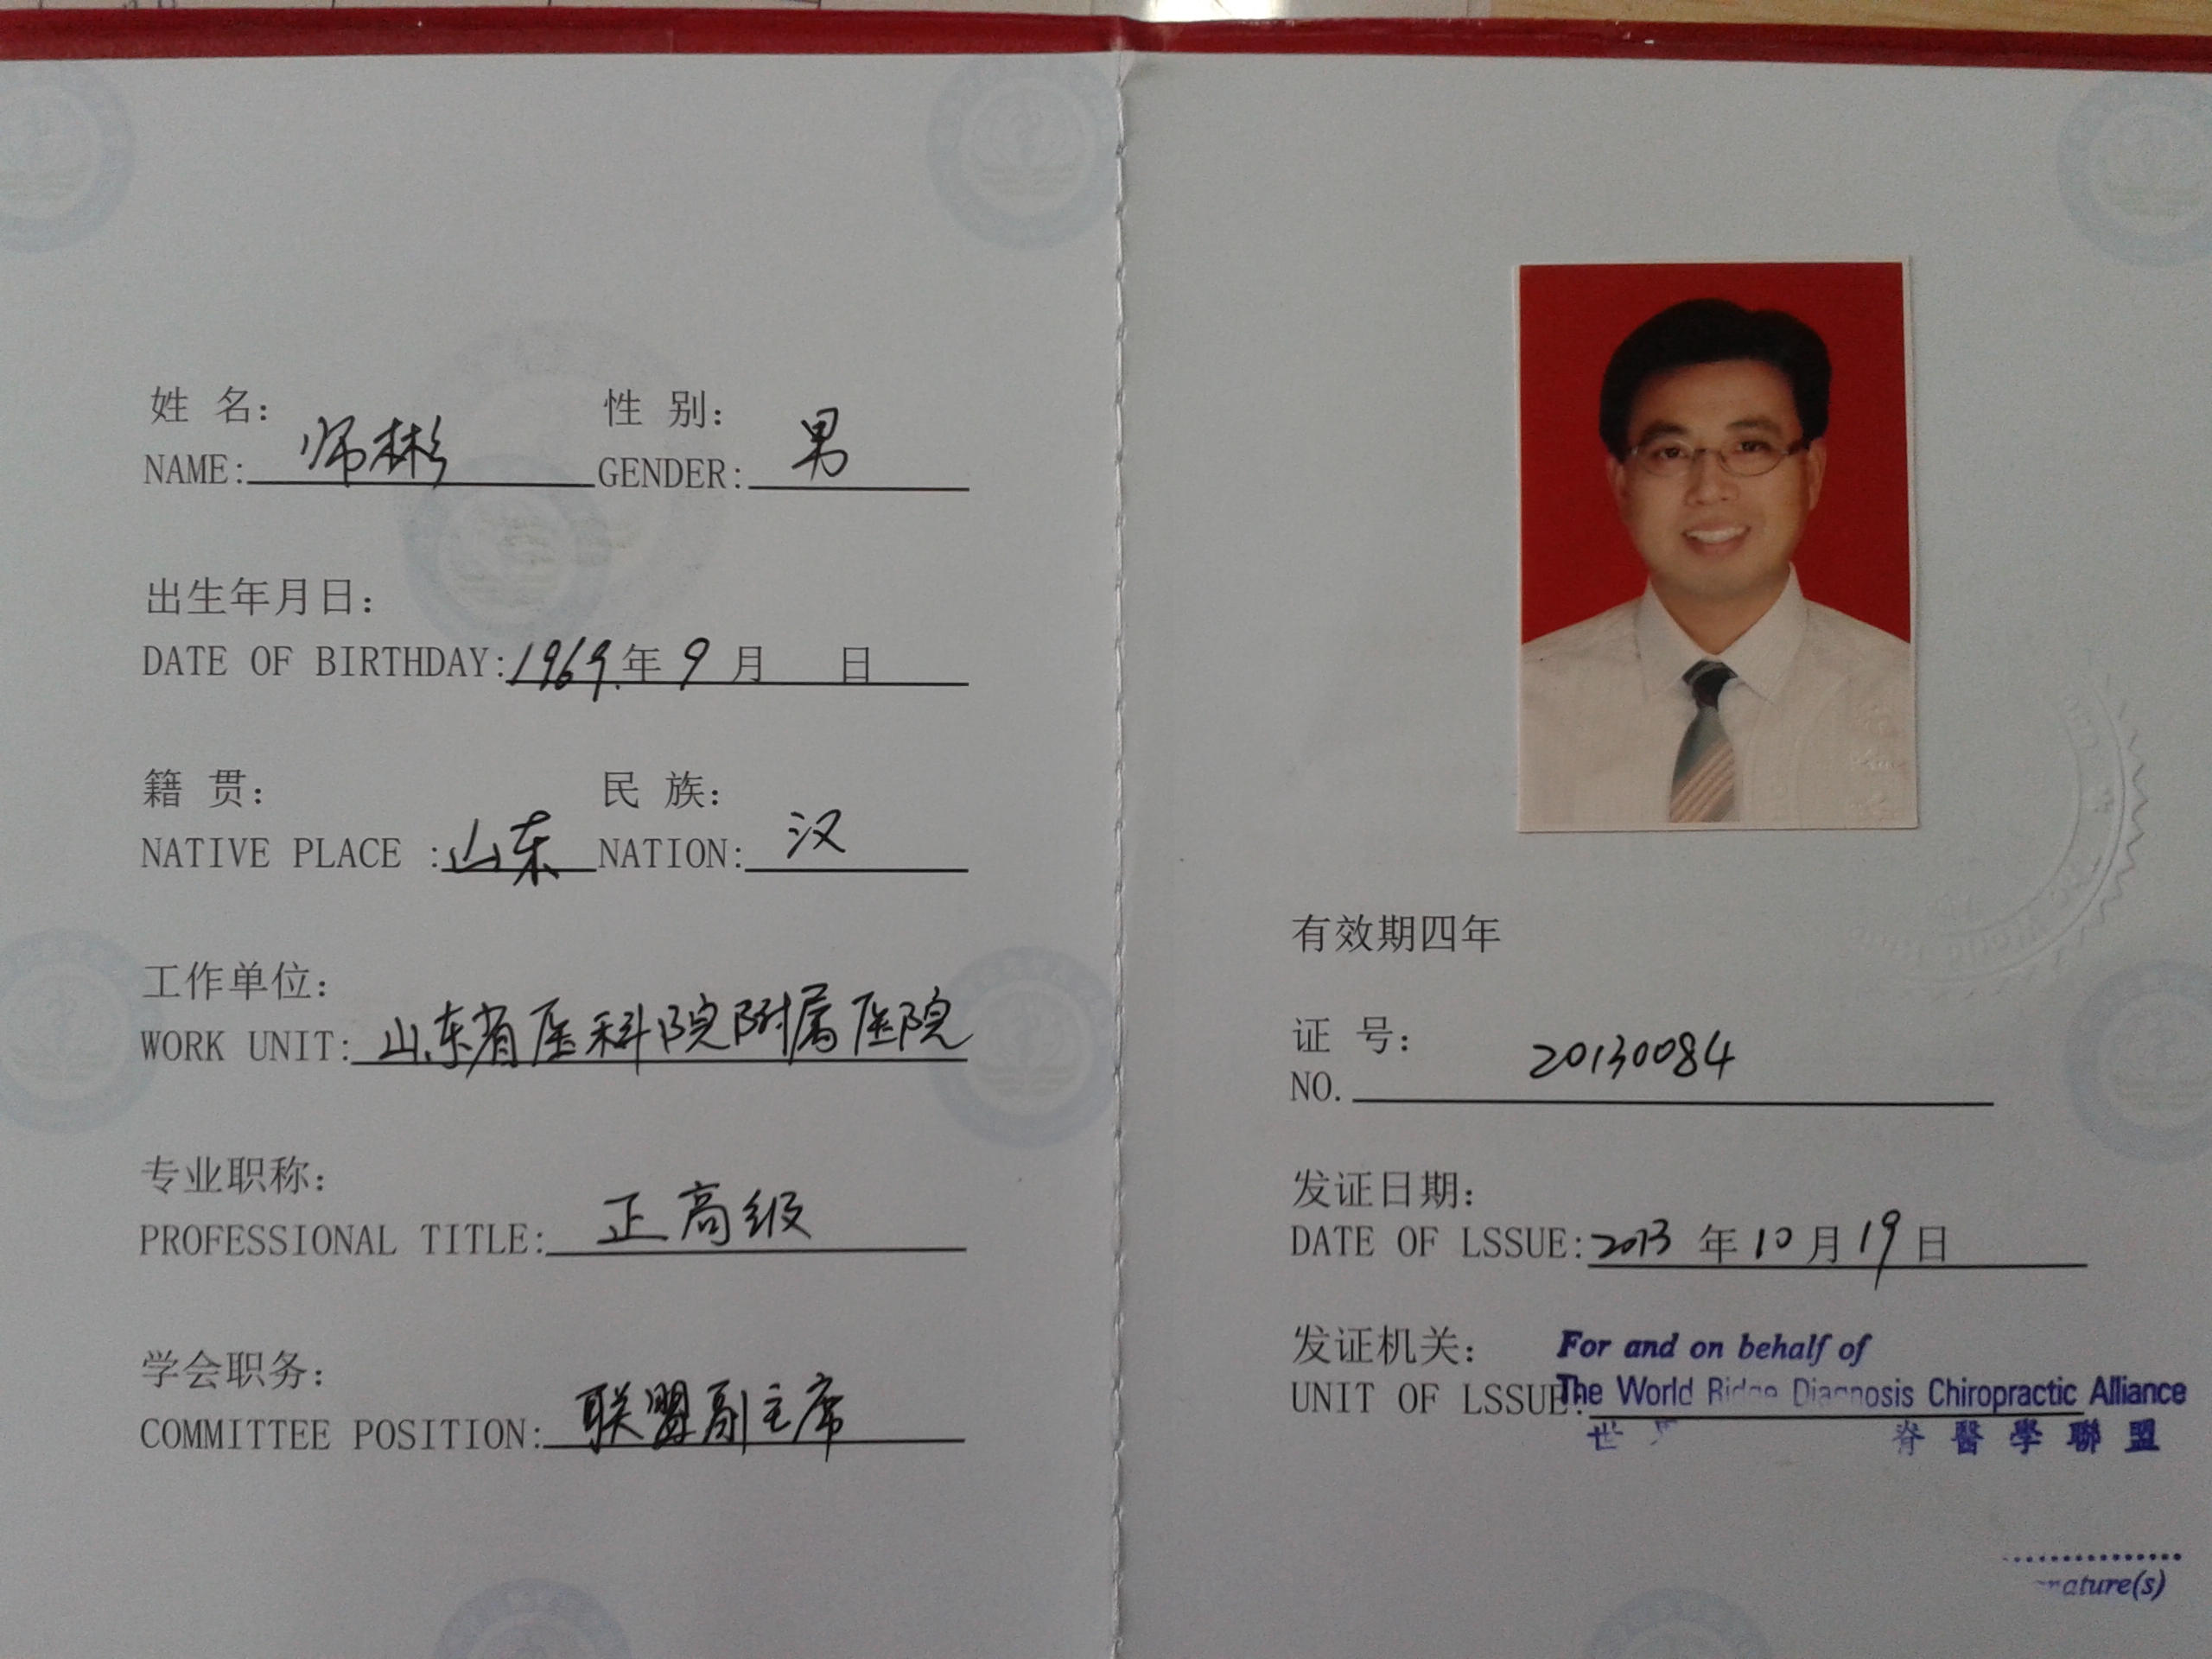 姓 名： 性 别：
NAME: 师彬 GENDER: 男
出生年月日：
DATE OF BIRTHDAY: 1969.年 9 月 日
籍 贯： 民 族：
NATIVE PLACE : 山东 NATION: 汉
工作单位：
WORK UNIT: 山东省医科院附属医院
专业职称：
PROFESSIONAL TITLE: 正高级
学会职务：
COMMITTEE POSITION: 联盟副主席
有效期四年
证 号： 20130084
NO.
发证日期：
DATE OF LSSUE: 2013 年 10 月 19 日
发证机关： For and on behalf of
UNIT OF LSSUE: The World Ridge Diagnosis Chiropractic Alliance
世 脊 醫 學 聯 盟